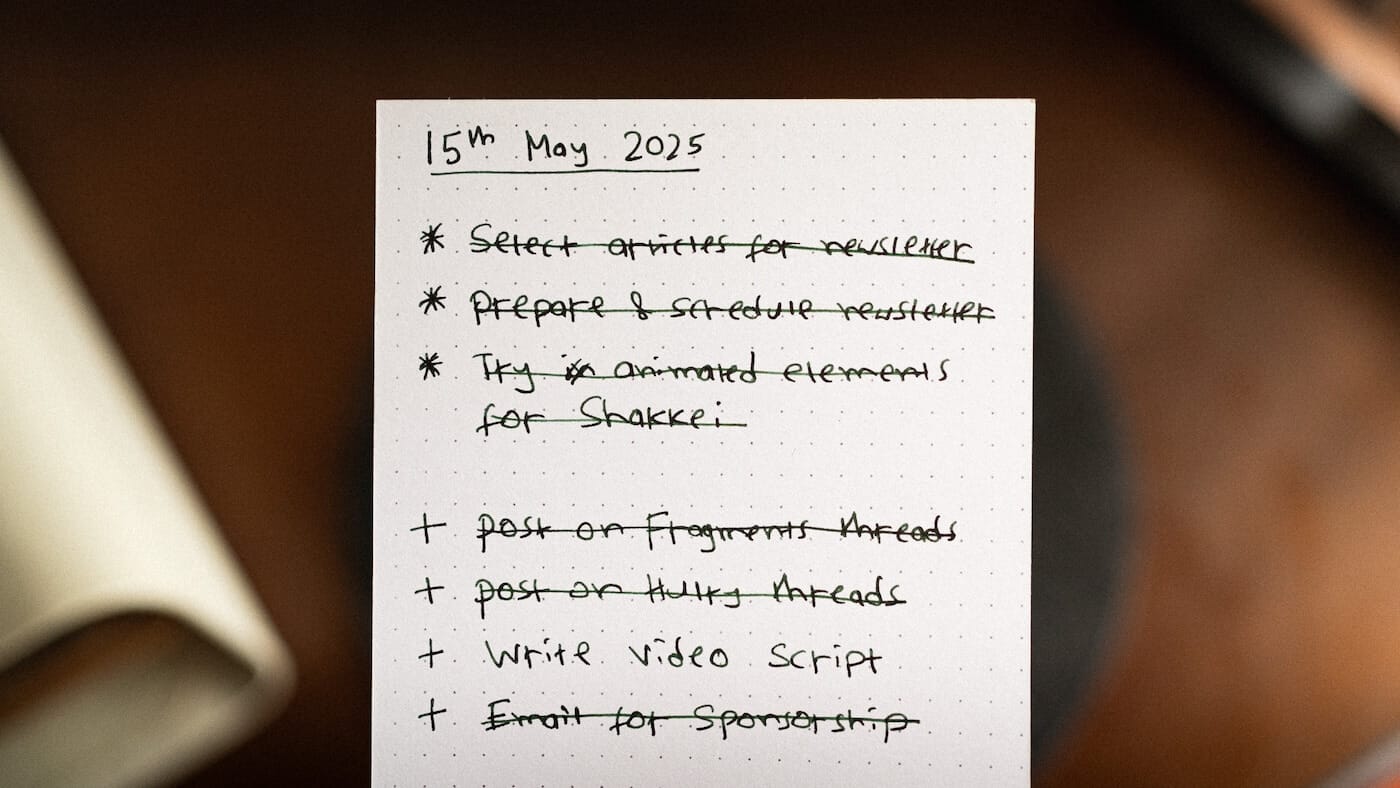 15th May 2025
* Select articles for newsletter
* prepare & schedule newsletter
* Try animated elements
for Shakkei
+ post on Fragments threads
+ post on Hulry threads
+ Write video script
+ Email for Sponsorship